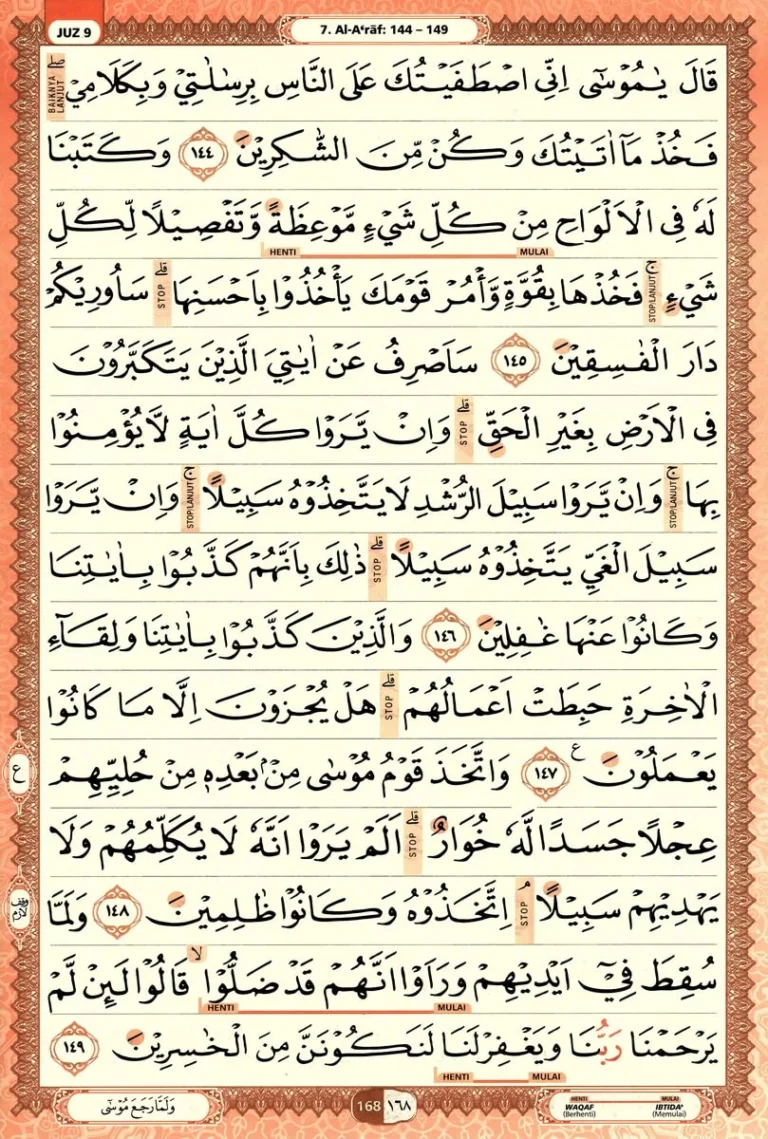 JUZ 9
7. Al-A‘rāf: 144 – 149
قَالَ يٰمُوْسٰٓى اِنِّى اصْطَفَيْتُكَ عَلَى النَّاسِ بِرِسٰلٰتِيْ وَبِكَلَامِيْ ۖ BAIKNYA LANJUT
فَخُذْ مَآ اٰتَيْتُكَ وَكُنْ مِّنَ الشّٰكِرِيْنَ ١٤٤ وَكَتَبْنَا
لَهٗ فِى الْاَلْوَاحِ مِنْ كُلِّ شَيْءٍ مَّوْعِظَةً وَّتَفْصِيْلًا لِّكُلِّ
MULAI HENTI
شَيْءٍ ۚ STOP/LANJUT فَخُذْهَا بِقُوَّةٍ وَّأْمُرْ قَوْمَكَ يَأْخُذُوْا بِاَحْسَنِهَا ۗ STOP سَاُورِيْكُمْ
دَارَ الْفٰسِقِيْنَ ١٤٥ سَاَصْرِفُ عَنْ اٰيٰتِيَ الَّذِيْنَ يَتَكَبَّرُوْنَ
فِى الْاَرْضِ بِغَيْرِ الْحَقِّ ۗ STOP وَاِنْ يَّرَوْا كُلَّ اٰيَةٍ لَّا يُؤْمِنُوْا
بِهَا ۚ STOP/LANJUT وَاِنْ يَّرَوْا سَبِيْلَ الرُّشْدِ لَا يَتَّخِذُوْهُ سَبِيْلًا ۚ STOP/LANJUT وَاِنْ يَّرَوْا
سَبِيْلَ الْغَيِّ يَتَّخِذُوْهُ سَبِيْلًا ۗ STOP ذٰلِكَ بِاَنَّهُمْ كَذَّبُوْا بِاٰيٰتِنَا
وَكَانُوْا عَنْهَا غٰفِلِيْنَ ١٤٦ وَالَّذِيْنَ كَذَّبُوْا بِاٰيٰتِنَا وَلِقَاۤءِ
الْاٰخِرَةِ حَبِطَتْ اَعْمَالُهُمْ ۗ STOP هَلْ يُجْزَوْنَ اِلَّا مَا كَانُوْا
ع يَعْمَلُوْنَ ࣖ ١٤٧ وَاتَّخَذَ قَوْمُ مُوْسٰى مِنْۢ بَعْدِهٖ مِنْ حُلِيِّهِمْ
عِجْلًا جَسَدًا لَّهٗ خُوَارٌ ۗ STOP اَلَمْ يَرَوْا اَنَّهٗ لَا يُكَلِّمُهُمْ وَلَا
وقف لازم يَهْدِيْهِمْ سَبِيْلًا ۘ STOP اِتَّخَذُوْهُ وَكَانُوْا ظٰلِمِيْنَ ١٤٨ وَلَمَّا
سُقِطَ فِيْٓ اَيْدِيْهِمْ وَرَاَوْا اَنَّهُمْ قَدْ ضَلُّوْا ۙ قَالُوْا لَىِٕنْ لَّمْ
MULAI HENTI
يَرْحَمْنَا رَبُّنَا وَيَغْفِرْ لَنَا لَنَكُوْنَنَّ مِنَ الْخٰسِرِيْنَ ١٤٩
HENTI MULAI
وَلَمَّا رَجَعَ مُوْسٰٓى
168 ١٦٨
HENTI MULAI
WAQAF IBTIDA’
(Berhenti) (Memulai)